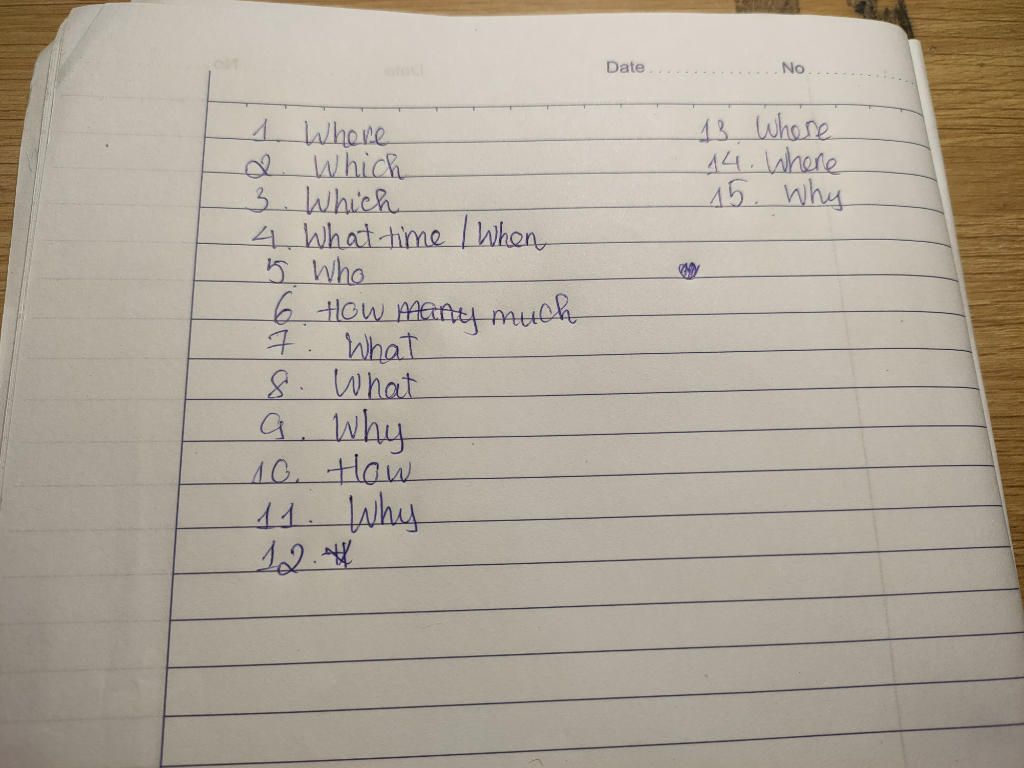 Date.............. No..............
1. Where
2. Which
3. Which
4. What time / When
5. Who
6. How many much
7. What
8. What
9. Why
10. How
11. Why
12.
13. Whose
14. Where
15. Why